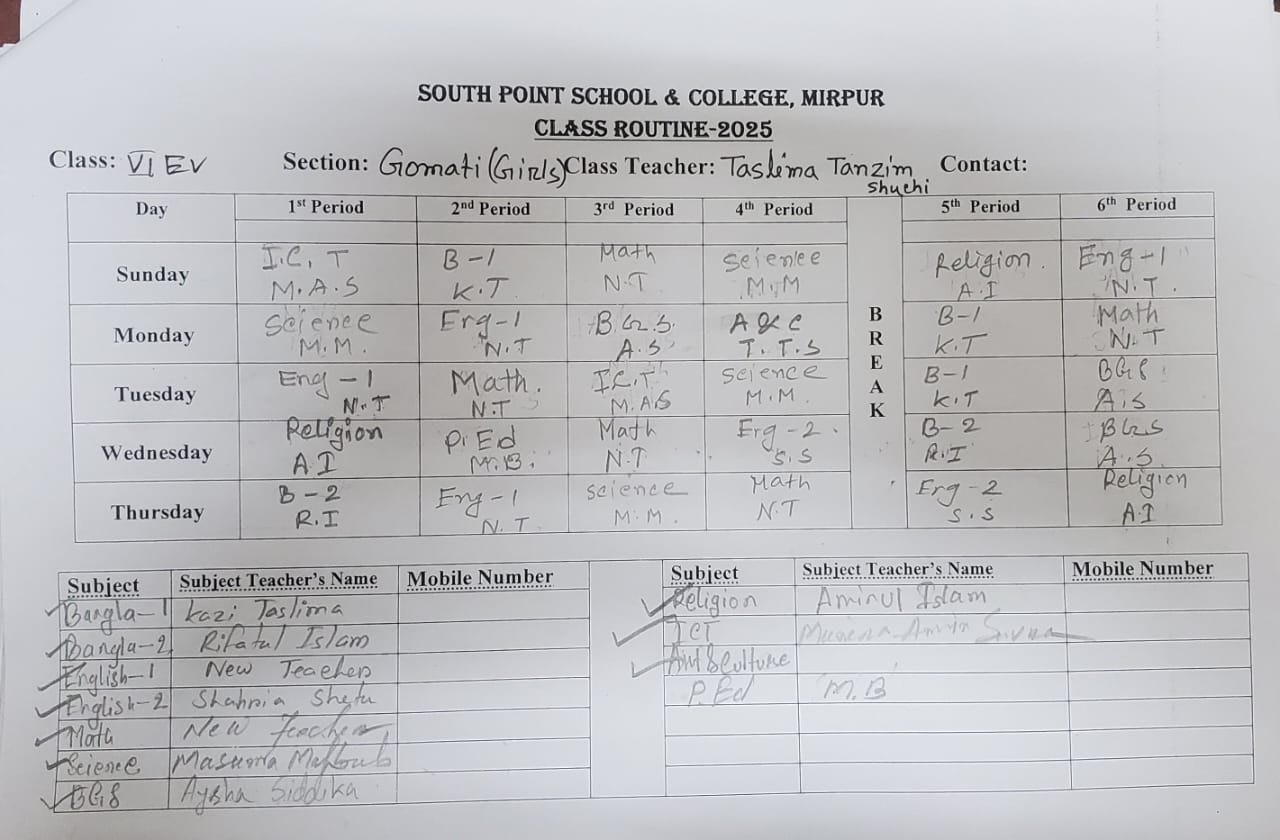 SOUTH POINT SCHOOL & COLLEGE, MIRPUR
CLASS ROUTINE-2025
Class: VI EV Section: Gomati (Girls) Class Teacher: Taslima Tanzim Contact:
Shuchi
Day 1st Period 2nd Period 3rd Period 4th Period 5th Period 6th Period
Sunday I.C.T B-1 Math Science Religion Eng-1
M.A.S K.T N.T M.M A.I N.T.
Monday Science Eng-1 B.G.S. A & C B-1 Math
M.M. N.T A.S T.T.S K.T N.T
BREAK
Tuesday Eng-1 Math. I.C.T Science B-1 BGS
N.T N.T M.A.S M.M. K.T A.S
Wednesday Religion P.Ed Math Eng-2. B-2 BGS
A.I M.B. N.T S.S R.I A.S.
Thursday B-2 Eng-1 Science Math Eng-2 Religion
R.I N.T. M.M. N.T S.S A.I
Subject Subject Teacher's Name Mobile Number Subject Subject Teacher's Name Mobile Number
Bangla-1 Kazi Taslima Religion Aminul Islam
Bangla-2 Rifatul Islam ICT
English-1 New Teacher Art & Culture
English-2 Shahria P.Ed M.B
Math New Teacher
Science Masuma
BGS Aysha Siddika